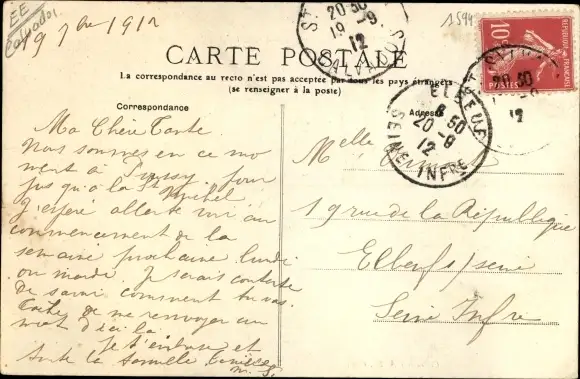 EE
Calvados
19 7bre 1912
1594
20 30
19-9
12
10c
POSTES
CARTE POSTALE
La correspondance au recto n'est pas acceptée par tous les pays étrangers
(se renseigner à la poste)
Correspondance
Adresse
8 50
20-9
12
SEINE INFRE
Ma Chère Tante
Nous sommes en ce mo
ment à pour
jus qu'à la St Michel
J'espère aller te voir au
commencement de la
semaine prochaine lundi
ou mardi. Je serais contente
de savoir comment tu vas.
Tâche de me renvoyer un
mot d'ici là
Je t'embrasse et
toute la famille
Melle
19 rue de la République
Elbeuf s/seine
Seine Infre